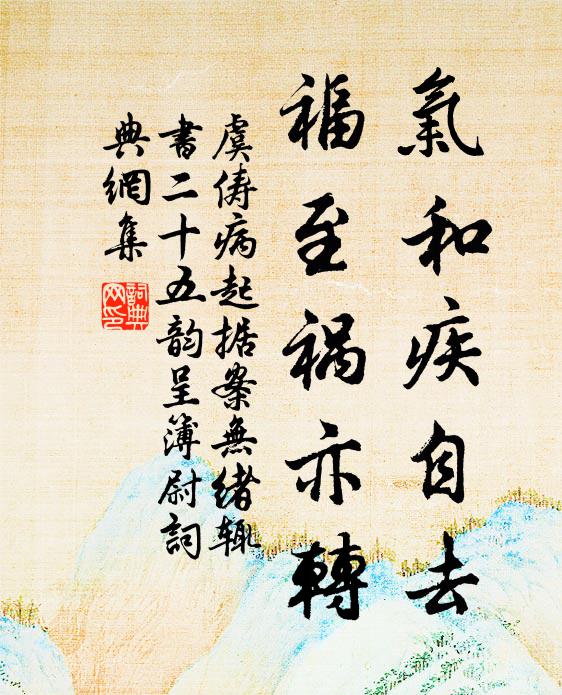 氣和疾自去
福至禍亦轉
虞俦病起据案無绪辄
書二十五韵呈簿尉詞
典網集
詞典網印